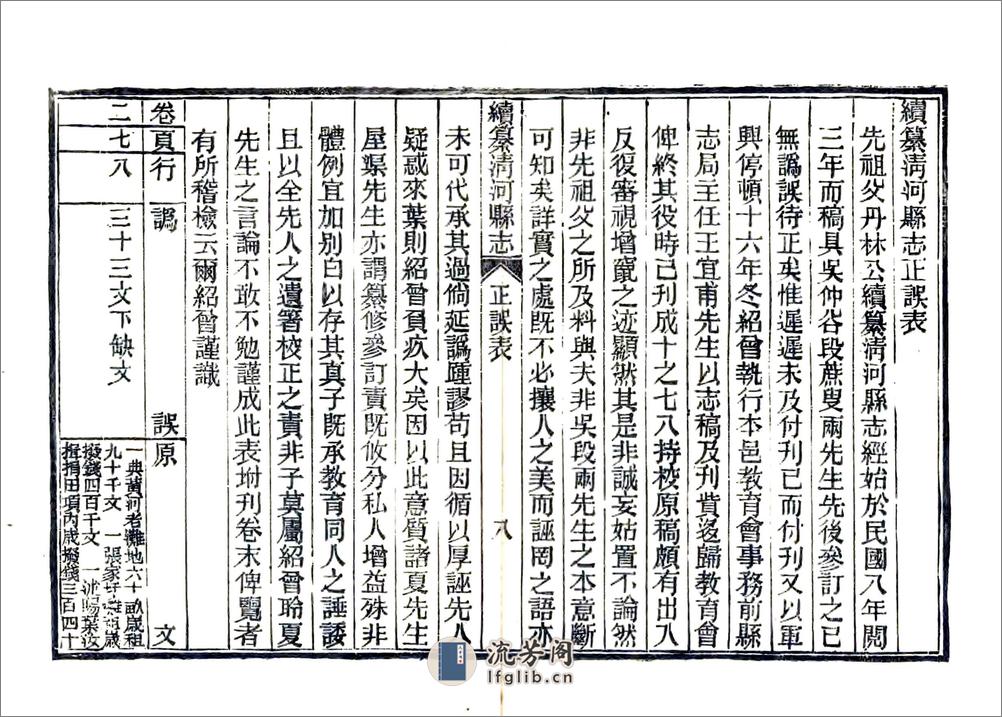 續纂淸河縣志正誤表
先祖父丹林公續纂淸河縣志經始於民國八年閱
三年而稿具吳仲谷段蔗叟兩先生先後參訂之已
無譌誤待正矣惟遲遲未及付刊已而付刊又以軍
興停頓十六年冬紹曾執行本邑敎育會事務前縣
志局主任王宜甫先生以志稿及刊貲迻歸敎育會
俾終其役時已刊成十之七八持校原稿頗有出入
反復審視增竄之迹顯然其是非誠妄姑置不論然
非先祖父之所及料與夫非吳段兩先生之本意斷
可知矣詳實之處既不必攘人之美而誣罔之語亦
續纂淸河縣志
正誤表
八
未可代承其過倘延譌踵謬苟且因循以厚誣先人
疑惑來葉則紹曾負疚大矣因以此意質諸夏先生
屋渠先生亦謂纂修參訂責既攸分私人增益殊非
體例宜加別白以存其真子既承敎育同人之諈諉
且以全先人之遺箸校正之責非子莫屬紹曾聆夏
先生之言論不敢不勉謹成此表坿刊卷末俾覽者
有所稽檢云爾紹曾謹識
卷 頁 行 譌 誤 原 文
二 七 八 三十三文下缺文
一典黃河者灘地六十畝歲租
九十千文 一張家圩灘租歲
撥錢四百千文
揖捐田項內歲撥錢三百四十
流芳阁
lfglib.cn